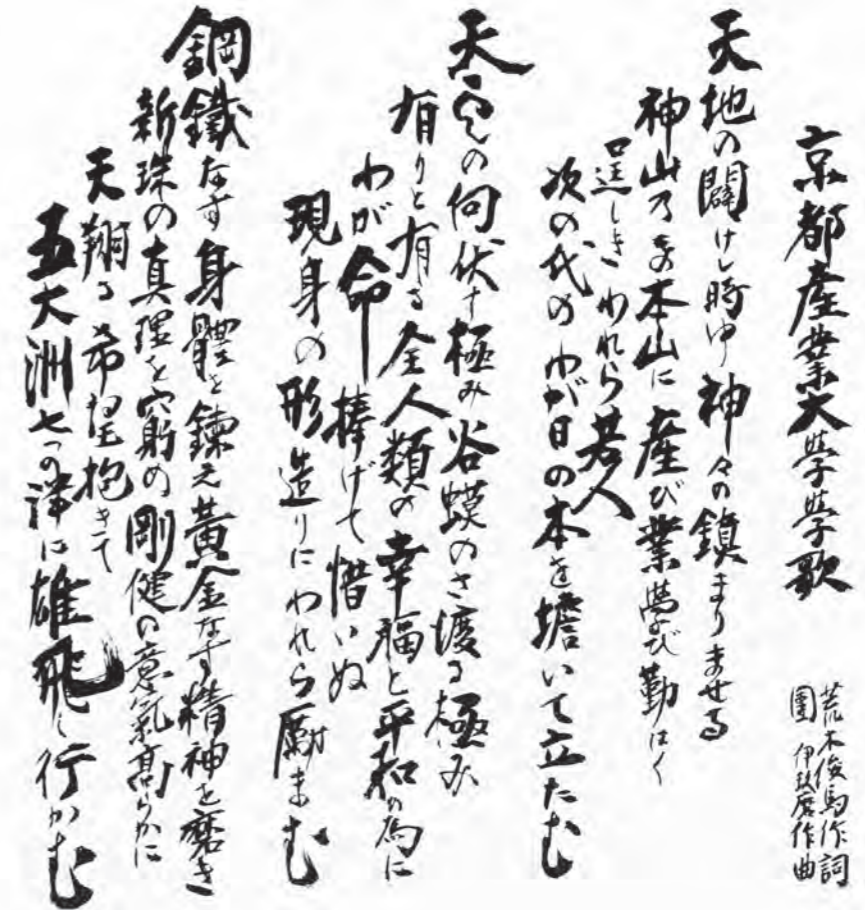 京都産業大學學歌
荒木俊馬作詞
團 伊玖磨作曲
天地の闢けし時ゆ 神々の鎮まりませる
神山乃この本山に 産び業學び勤はく
逞しき われら若人
次の代の わが日の本を擔いて立たむ
天雲の向伏す極み 谷蟆のさ渡る極み
有りと有る全人類の 幸福と平和の為に
わが命 捧げて惜いぬ
現身の形造りに われら勵まむ
鋼鐵なす身體を錬え 黄金なす精神を磨き
新珠の真理を窮め 剛健の意氣高らかに
天翔る希望抱きて
五大洲七つの洋に 雄飛し行かむ